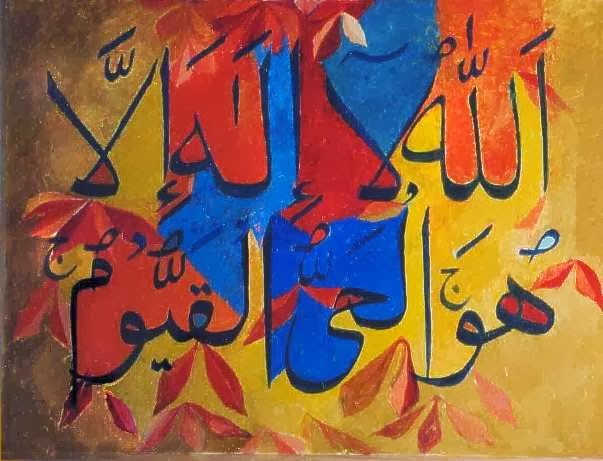 اَللّٰهُ لَآ إِلٰهَ إِلَّا
هُوَ ۚ الْحَىُّ الْقَيُّوْمُ ۚ